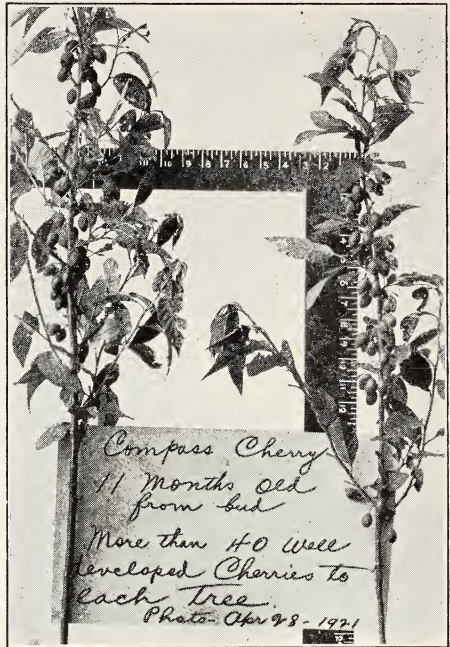 Compass Cherry
11 Months Old
from bud
More than 40 well
developed Cherries to
each Tree.
Photo - Apr 28 - 1921